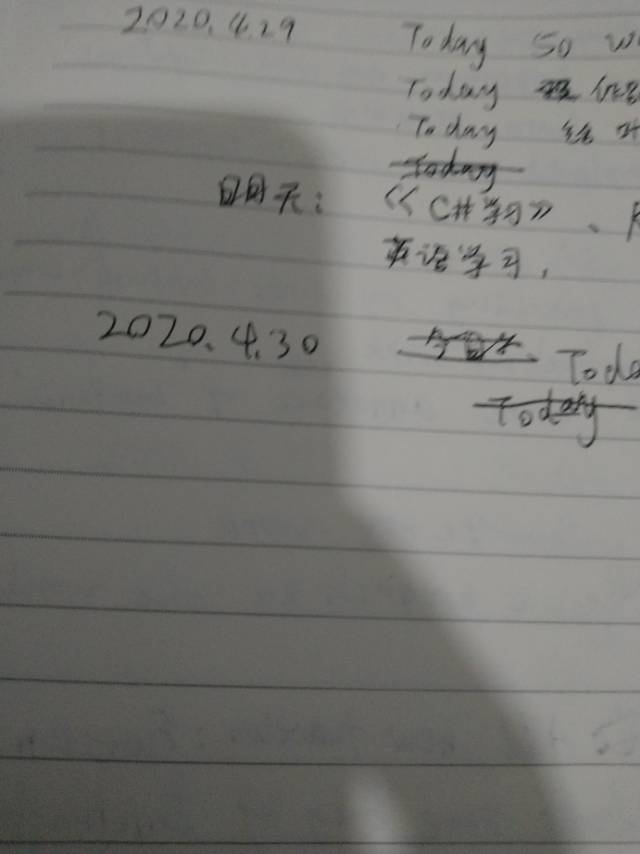 2020.4.29 Today so
Today
Today 给
Today
明天：《C#学习》、
英语学习，
2020.4.30 Toda
Today